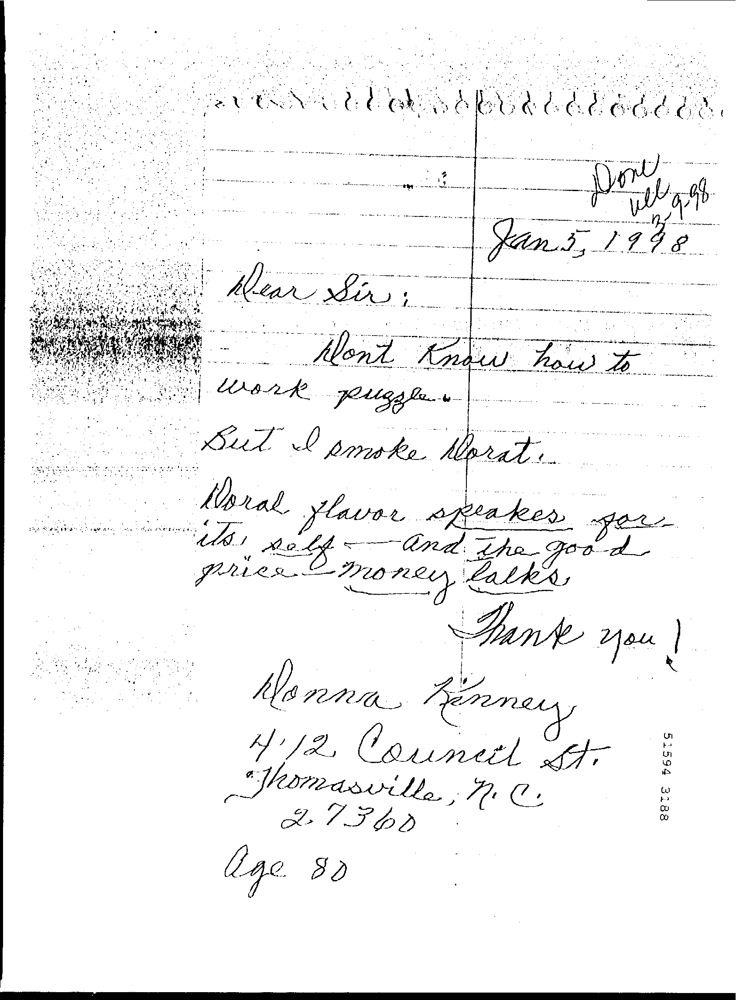 Done
3-9-98
Jan 5, 1998
Dear Sir:
Dont Know how to
work puzzle.
But I smoke Dorat.
Doral flavor speakes for
its, self — and the good
price — money talks
Thank you!
Donna Kinney
412 Council St.
Thomasville, N.C.
27360
Age 80
51594 3188